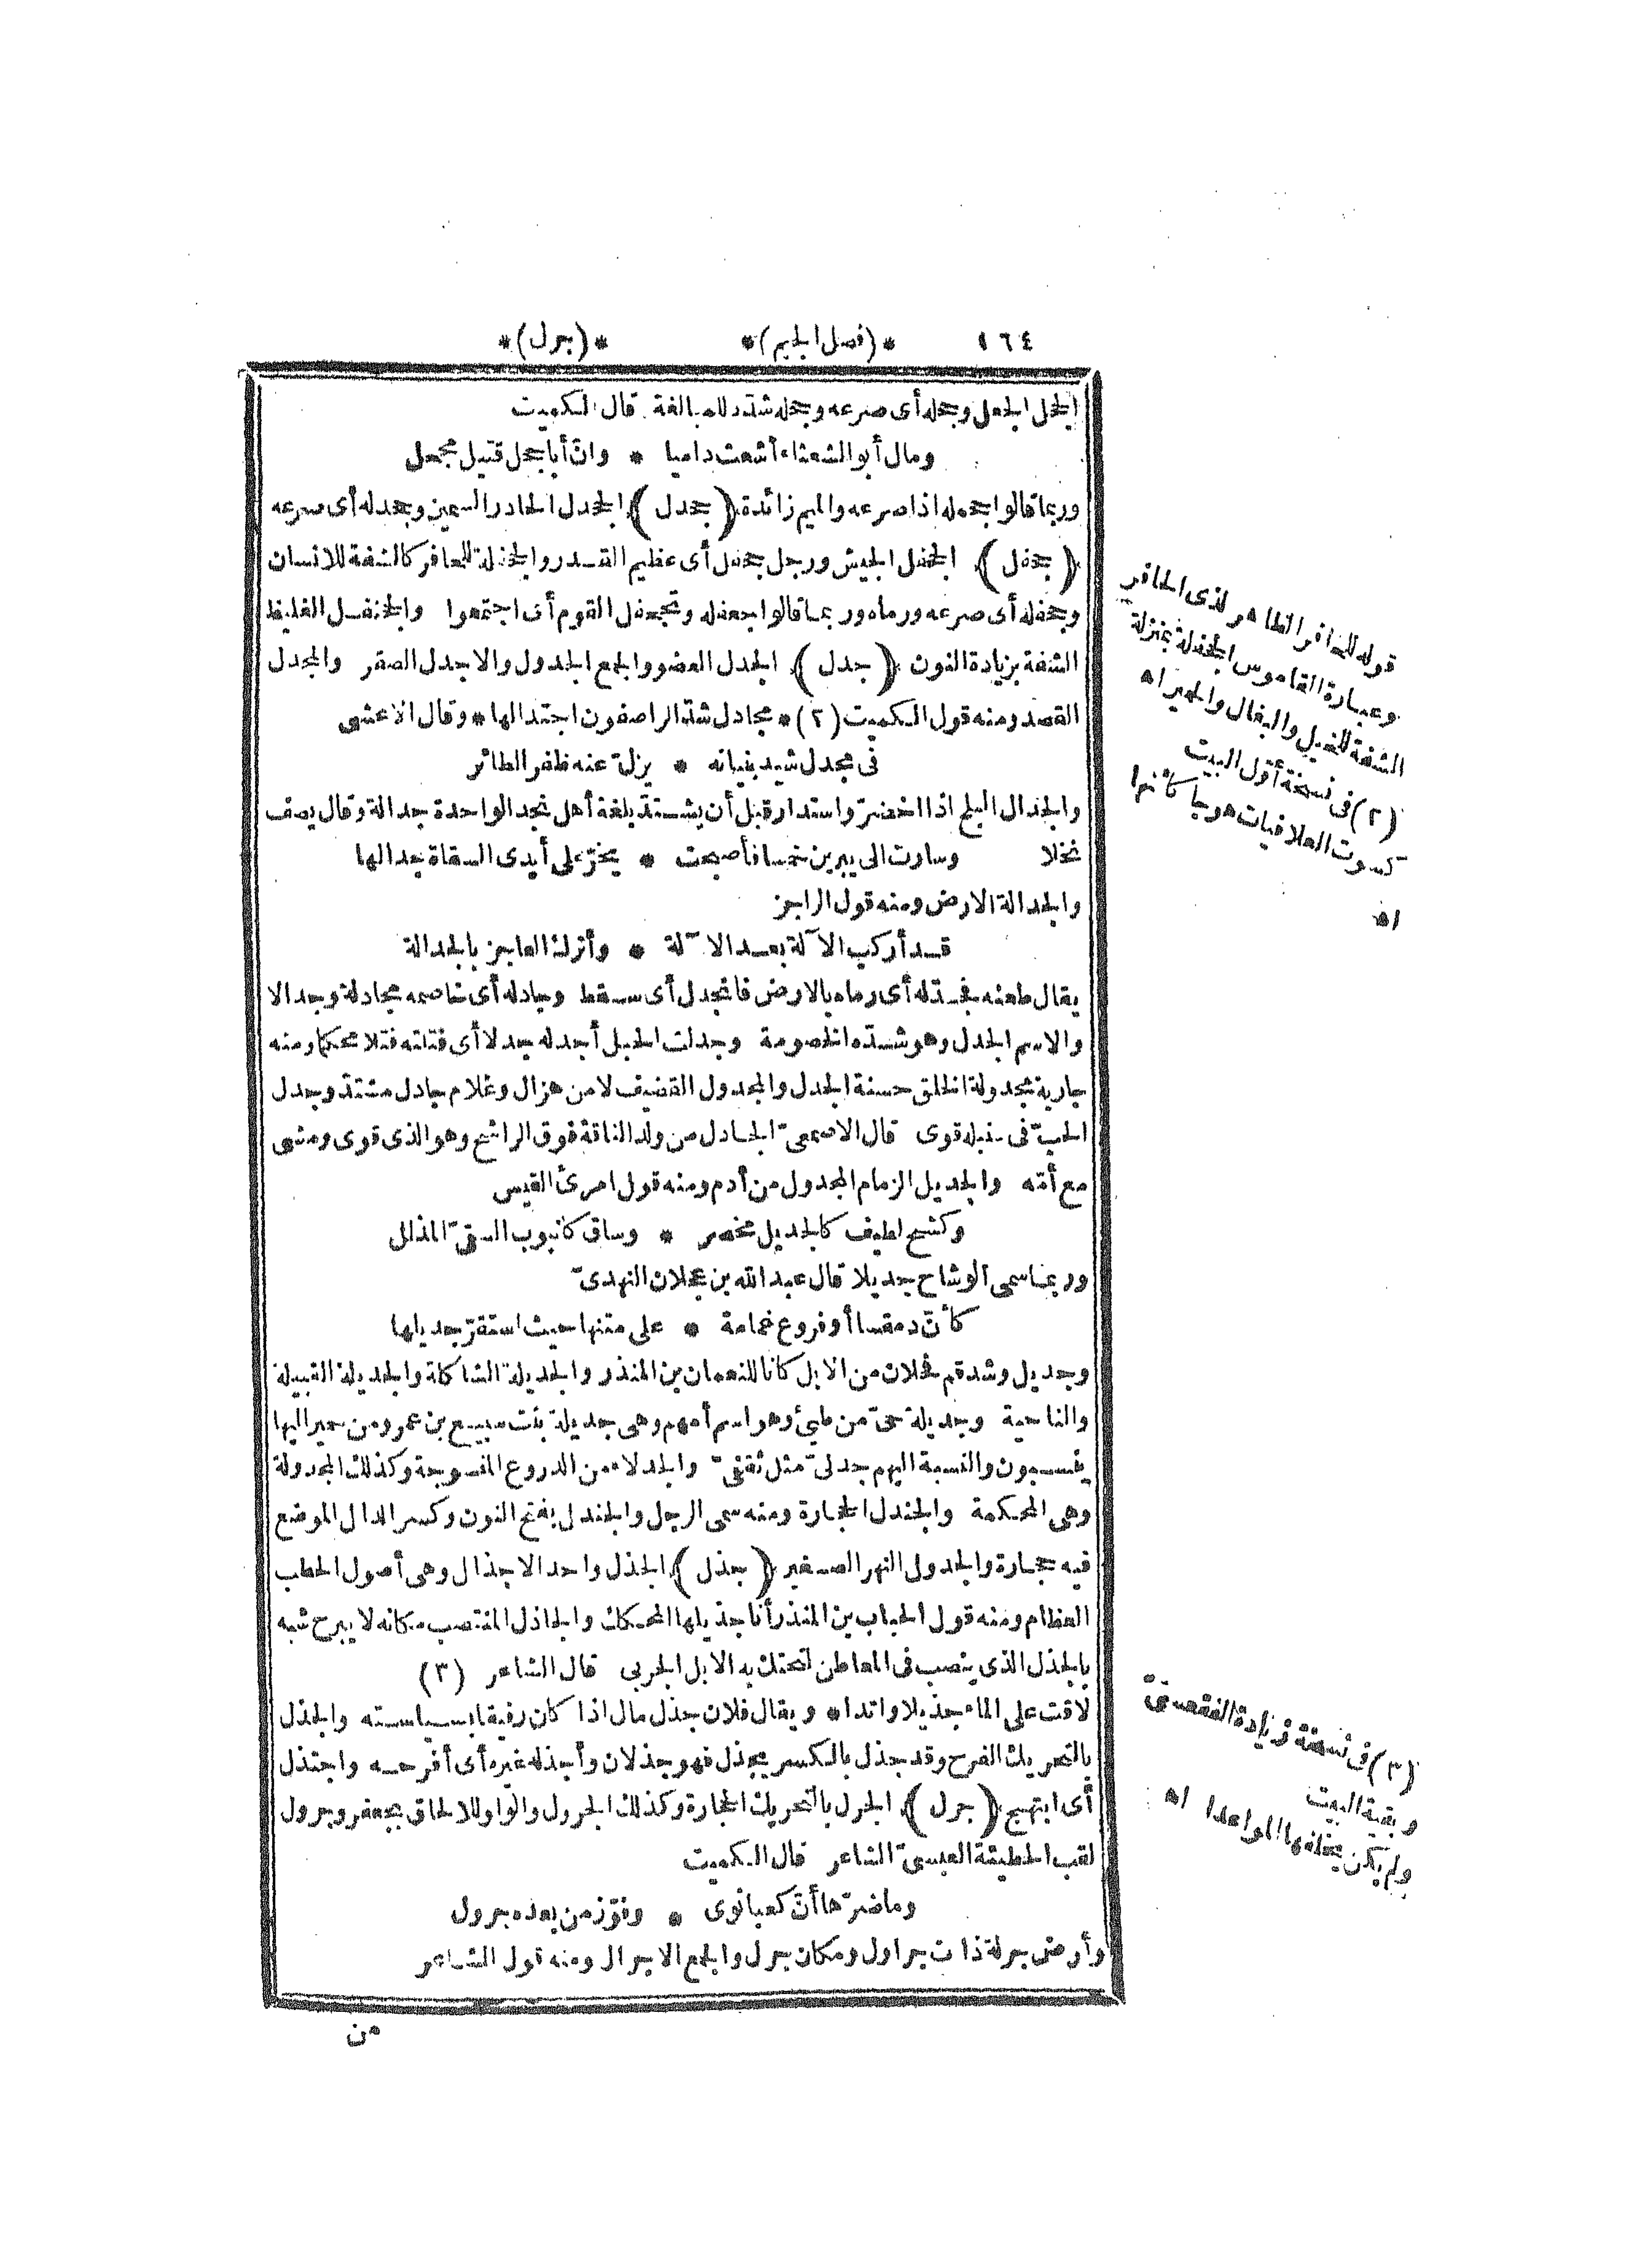 ١٦٤ *(فصل الجيم)* *(جرل)*
الجحل الجعل وجحله أى صرعه وجحله شدد للمبالغة قال الكميت
ومال أبو الشعثاء أشعث داميا * وانّ أبا جحل قتيل مجحل
وربما قالوا جحمله اذا صرعه والميم زائدة (جحدل) الجحدل الحادر السمين وجحدله أى صرعه
(جحفل) الجحفل الجيش ورجل جحفل أى عظيم القدر والجحفلة للحافر كالشفة للانسان
وجحفله أى صرعه ورماه وربما قالوا جعفله وتجحفل القوم أى اجتمعوا والجحنفل الغليظ
الشفة بزيادة النون (جدل) الجدل العضو والجمع الجدول والاجدل الصقر والمجدل
القصد ومنه قول الكميت (٢) * مجادل شدّ الراصفون اجتدالها * وقال الاعشى
فى مجدل شيد بنيانه * يزلّ عنه ظفر الطائر
والجدال البلح اذا اخضرّ واستدار قبل أن يشتدّ بلغة أهل نجد الواحدة جدالة وقال يصف
نخلا وسارت الى يبرين خمسا فأصبحت * يخرّ على أيدى السقاة جدالها
والجدالة الارض ومنه قول الراجز
قد أركب الآلة بعد الآلة * وأترك العاجز بالجدالة
يقال طعنه فجدّله أى رماه بالارض فانجدل أى سقط وجادله أى خاصمه مجادلة وجدالا
والاسم الجدل وهو شدّة الخصومة وجدلت الحبل أجدله جدلا أى فتلته فتلا محكما ومنه
جارية مجدولة الخلق حسنة الجدل والمجدول القضيف لا من هزال وغلام جادل مشتدّ وجدل
الحبّ فى سنبله قوى قال الاصمعىّ الجادل من ولد الناقة فوق الراشح وهو الذى قوى ومشى
مع أمّه والجديل الزمام المجدول من أدم ومنه قول امرئ القيس
وكشح لطيف كالجديل مخصر * وساق كانبوب السقىّ المذلل
وربما سمى الوشاح جديلا قال عبد الله بن عجلان النهدىّ
كأنّ دمقسا أو فروع غمامة * على متنها حيث استقرّ جديلها
وجديل وشدقم فحلان من الابل كانا للنعمان بن المنذر والجديلة الشاكلة والجديلة القبيلة
والناحية وجديلة حىّ من طيئ وهو اسم أمهم وهى جديلة بنت سبيع بن عمرو من حمير اليها
ينسبون والنسبة اليهم جدلىّ مثل ثقفىّ والجدلاء من الدروع المنسوجة وكذلك المجدولة
وهى المحكمة والجندل الحجارة ومنه سمى الرجل والجندل بفتح النون وكسر الدال الموضع
فيه حجارة والجدول النهر الصغير (جذل) الجذل واحد الاجذال وهى أصول الحطب
العظام ومنه قول الحباب بن المنذر أنا جذيلها المحكك والجاذل المنتصب مكانه لا يبرح شبه
بالجذل الذى ينصب فى المعاطن لتحتك به الابل الجربى قال الشاعر (٣)
لاقت على الماء جذيلا واتدا * ويقال فلان جذل مال اذا كان رفيقا بسياسته والجذل
بالتحريك الفرح وقد جذل بالكسر يجذل فهو جذلان وأجذله غيره أى أفرحه واجتذل
أى ابتهج (جرل) الجرل بالتحريك الحجارة وكذلك الجرول والواو للالحاق بجعفر وجرول
لقب الحطيئة العبسىّ الشاعر قال الكميت
وما ضرّها أنّ كعبا نوى * وفوّز من بعده جرول
وأرض جرلة ذات جراول ومكان جرل والجمع الاجرال ومنه قول الشاعر
من
قوله للحافر الظاهر لذى الحافر
وعبارة القاموس الجحفلة بمنزلة
الشفة للخيل والبغال والحمير اه
(٢) فى نسخة أوّل البيت
كسوت العلافيات هوجا كأنها
اه
(٣) فى نسخة زيادة الفقعسىّ
وبقية البيت
ولم يكن يخلفها المواعدا اه